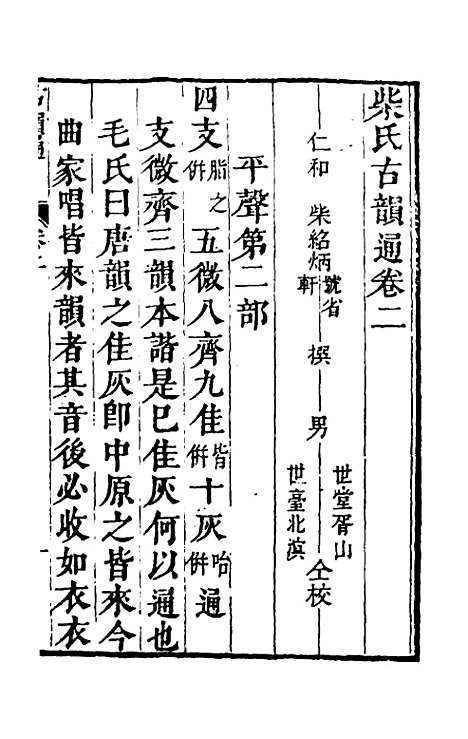 柴氏古韻通卷二
仁和 柴紹炳號省軒 撰 男 世堂胥山 世臺北溟 仝校
平聲第二部
四支脂之併五微八齊九佳皆併十灰咍併通
支微齊三韻本諧是已佳灰何以通也
毛氏曰唐韻之佳灰即中原之皆來今
曲家唱皆來韻者其音後必收如衣衣